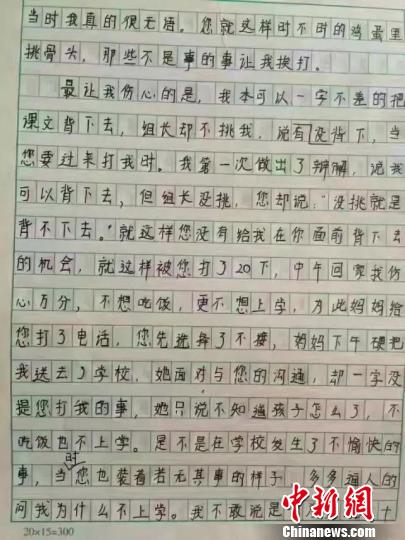 当时我真的很无语。您就这样时不时的鸡蛋里
挑骨头，那些不是事的事让我挨打。
最让我伤心的是，我本可以一字不差的把
课文背下去，组长却不挑我，说有没背下，当
您要过来打我时。我第一次做出了辩解，说我
可以背下去，但组长没挑，您却说："没挑就是
背不下去。"就这样您没有给我在你面前背下去
的机会，就这样被您打了20下，中午回家我伤
心万分，不想吃饭，更不想上学，为此妈妈给
您打了电话，您先选择了不接，妈妈下午硬把
我送去了学校，她面对与您的沟通，却一字没
提您打我的事，她只说不知道孩子怎么了，不
吃饭也不上学。是不是在学校发生了不愉快的
事，当时您也装着若无其事的样子 多多逼人的
问我为什么不上学。我不敢说是 十
20×15=300
中新网
Chinanews.com